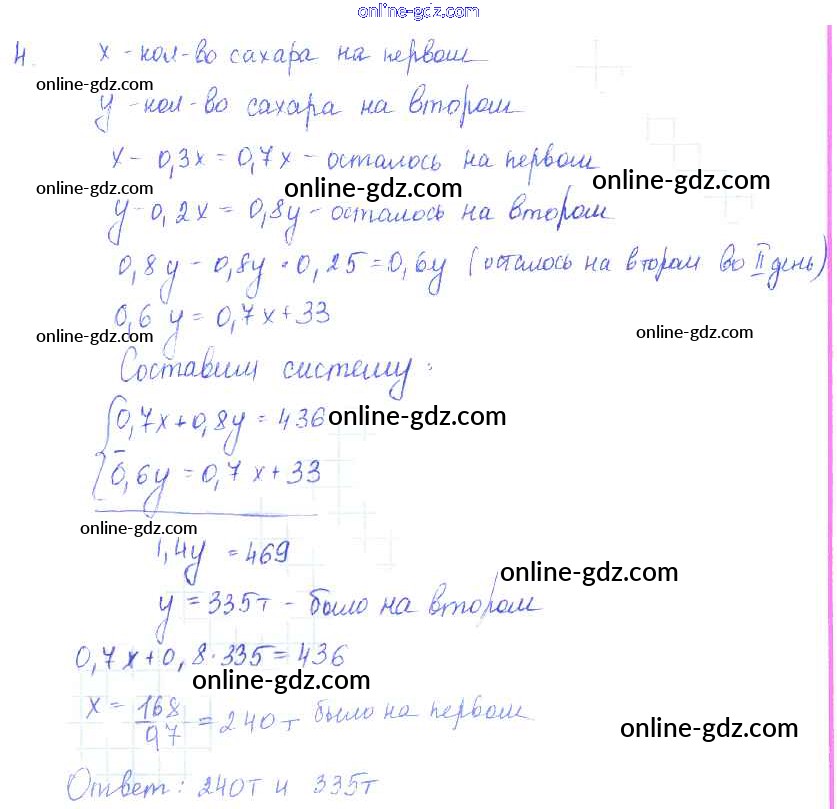 online-gdz.com
4. х - кол-во сахара на первом
online-gdz.com
у - кол-во сахара на втором
х - 0,3х = 0,7х - осталось на первом
online-gdz.com online-gdz.com online-gdz.com
у - 0,2х = 0,8у - осталось на втором
0,8у - 0,8у · 0,25 = 0,6у (осталось на втором во II день)
0,6 у = 0,7х + 33
online-gdz.com online-gdz.com
Составим систему:
0,7х + 0,8у = 436 online-gdz.com
0,6у = 0,7х + 33
online-gdz.com
1,4у = 469
online-gdz.com
у = 335т - было на втором
0,7х + 0,8 · 335 = 436
online-gdz.com
х = 168/97 = 240т было на первом
online-gdz.com
Ответ: 240т и 335т